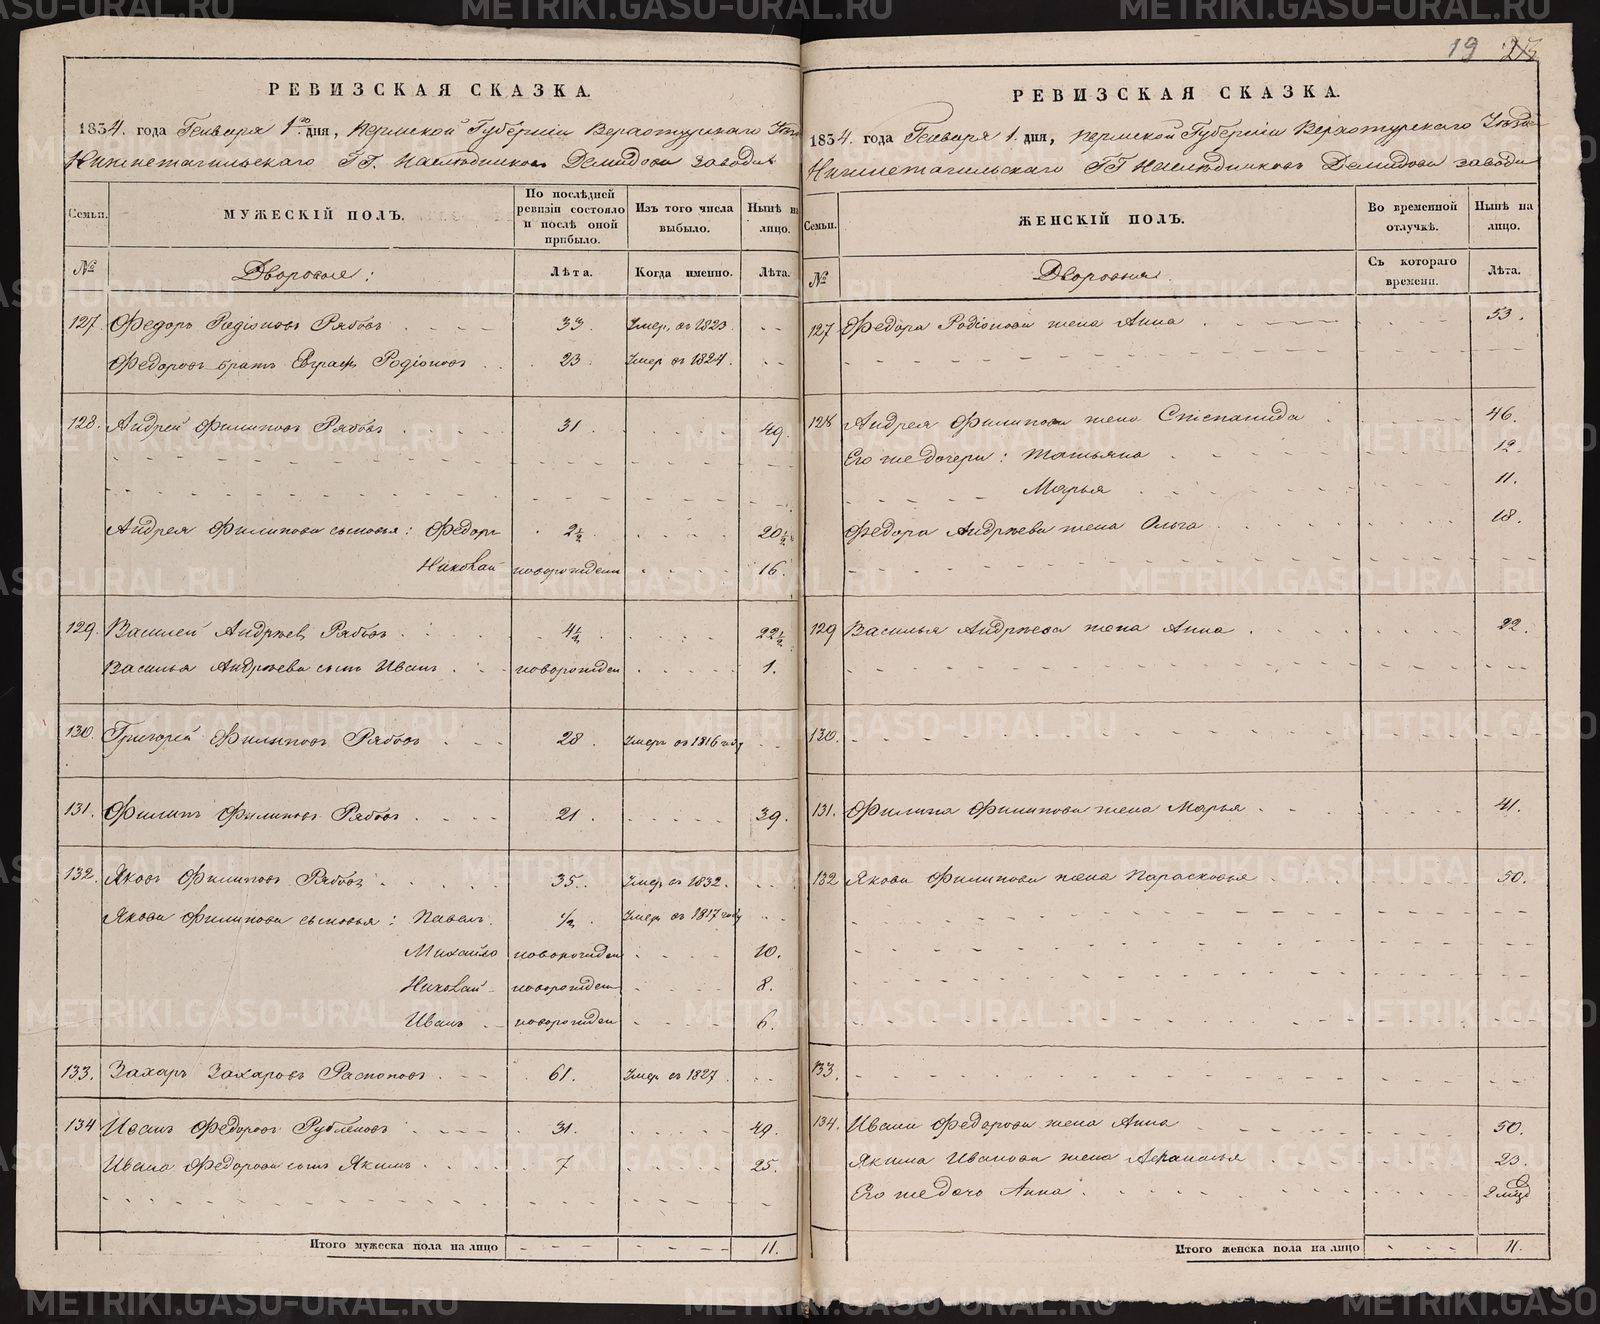 19 23
РЕВИЗСКАЯ СКАЗКА.
1834. года Генваря 1го дня, Пермской Губерніи Верхотурскаго Уезда
Нижнетагильскаго ГГ. Наследниковъ Демидова заводъ
Семьи. МУЖЕСКІЙ ПОЛЪ. По послѣдней ревизіи состояло и послѣ оной прибыло. Изъ того числа выбыло. Нынѣ на лицо.
№ Дворовые: Лѣта. Когда именно. Лѣта.
127. Федоръ Родіоновъ Рябовъ 33. Умер. въ 1823.
Федоровъ братъ Евграфъ Родіоновъ 23 Умер въ 1824.
128. Андрей Филиповъ Рябовъ 31 49.
Андрея Филипова сыновья: Федоръ 2½ 20½
Николай новорожден 16.
129. Василей Андреевъ Рябовъ 4½ 22½
Василья Андреева сынъ Иванъ новорожден 1.
130. Григорей Филиповъ Рябовъ 28. Умеръ въ 1816 году
131. Филипъ Филиповъ Рябовъ 21. 39.
132. Яковъ Филиповъ Рябовъ 35. Умер. въ 1832.
Якова Филипова сыновья: Павелъ ½. Умер. въ 1817 году
Михайло новорожден 10.
Николай новорожден 8.
Иванъ новорожден 6.
133. Захаръ Захаровъ Распоповъ 61. Умер. въ 1827.
134 Иванъ Федоровъ Рублевовъ 31. 49.
Ивана Федорова сынъ Якимъ 7 25.
Итого мужеска пола на лицо 11.
РЕВИЗСКАЯ СКАЗКА.
1834. года Генваря 1. дня, Пермской Губерніи Верхотурскаго Уезда
Нижнетагильскаго ГГ Наследниковъ Демидова заводъ
Семьи. ЖЕНСКІЙ ПОЛЪ. Во временной отлучкѣ. Нынѣ на лицо.
№ Дворовыя Съ котораго времени. Лѣта.
127 Федора Родіонова жена Анна 53.
128 Андрея Филипова жена Степанида 46.
Его же дочери: Татьяна 12.
Марья 11.
Федора Андреева жена Ольга 18.
129 Василья Андреева жена Анна 22.
130.
131. Филипа Филипова жена Марья 41.
132 Якова Филипова жена Парасковья 50.
133.
134. Ивана Федорова жена Анна 50.
Якима Иванова жена Афанасья 23.
Его же дочь Анна
Итого женска пола на лицо 11.